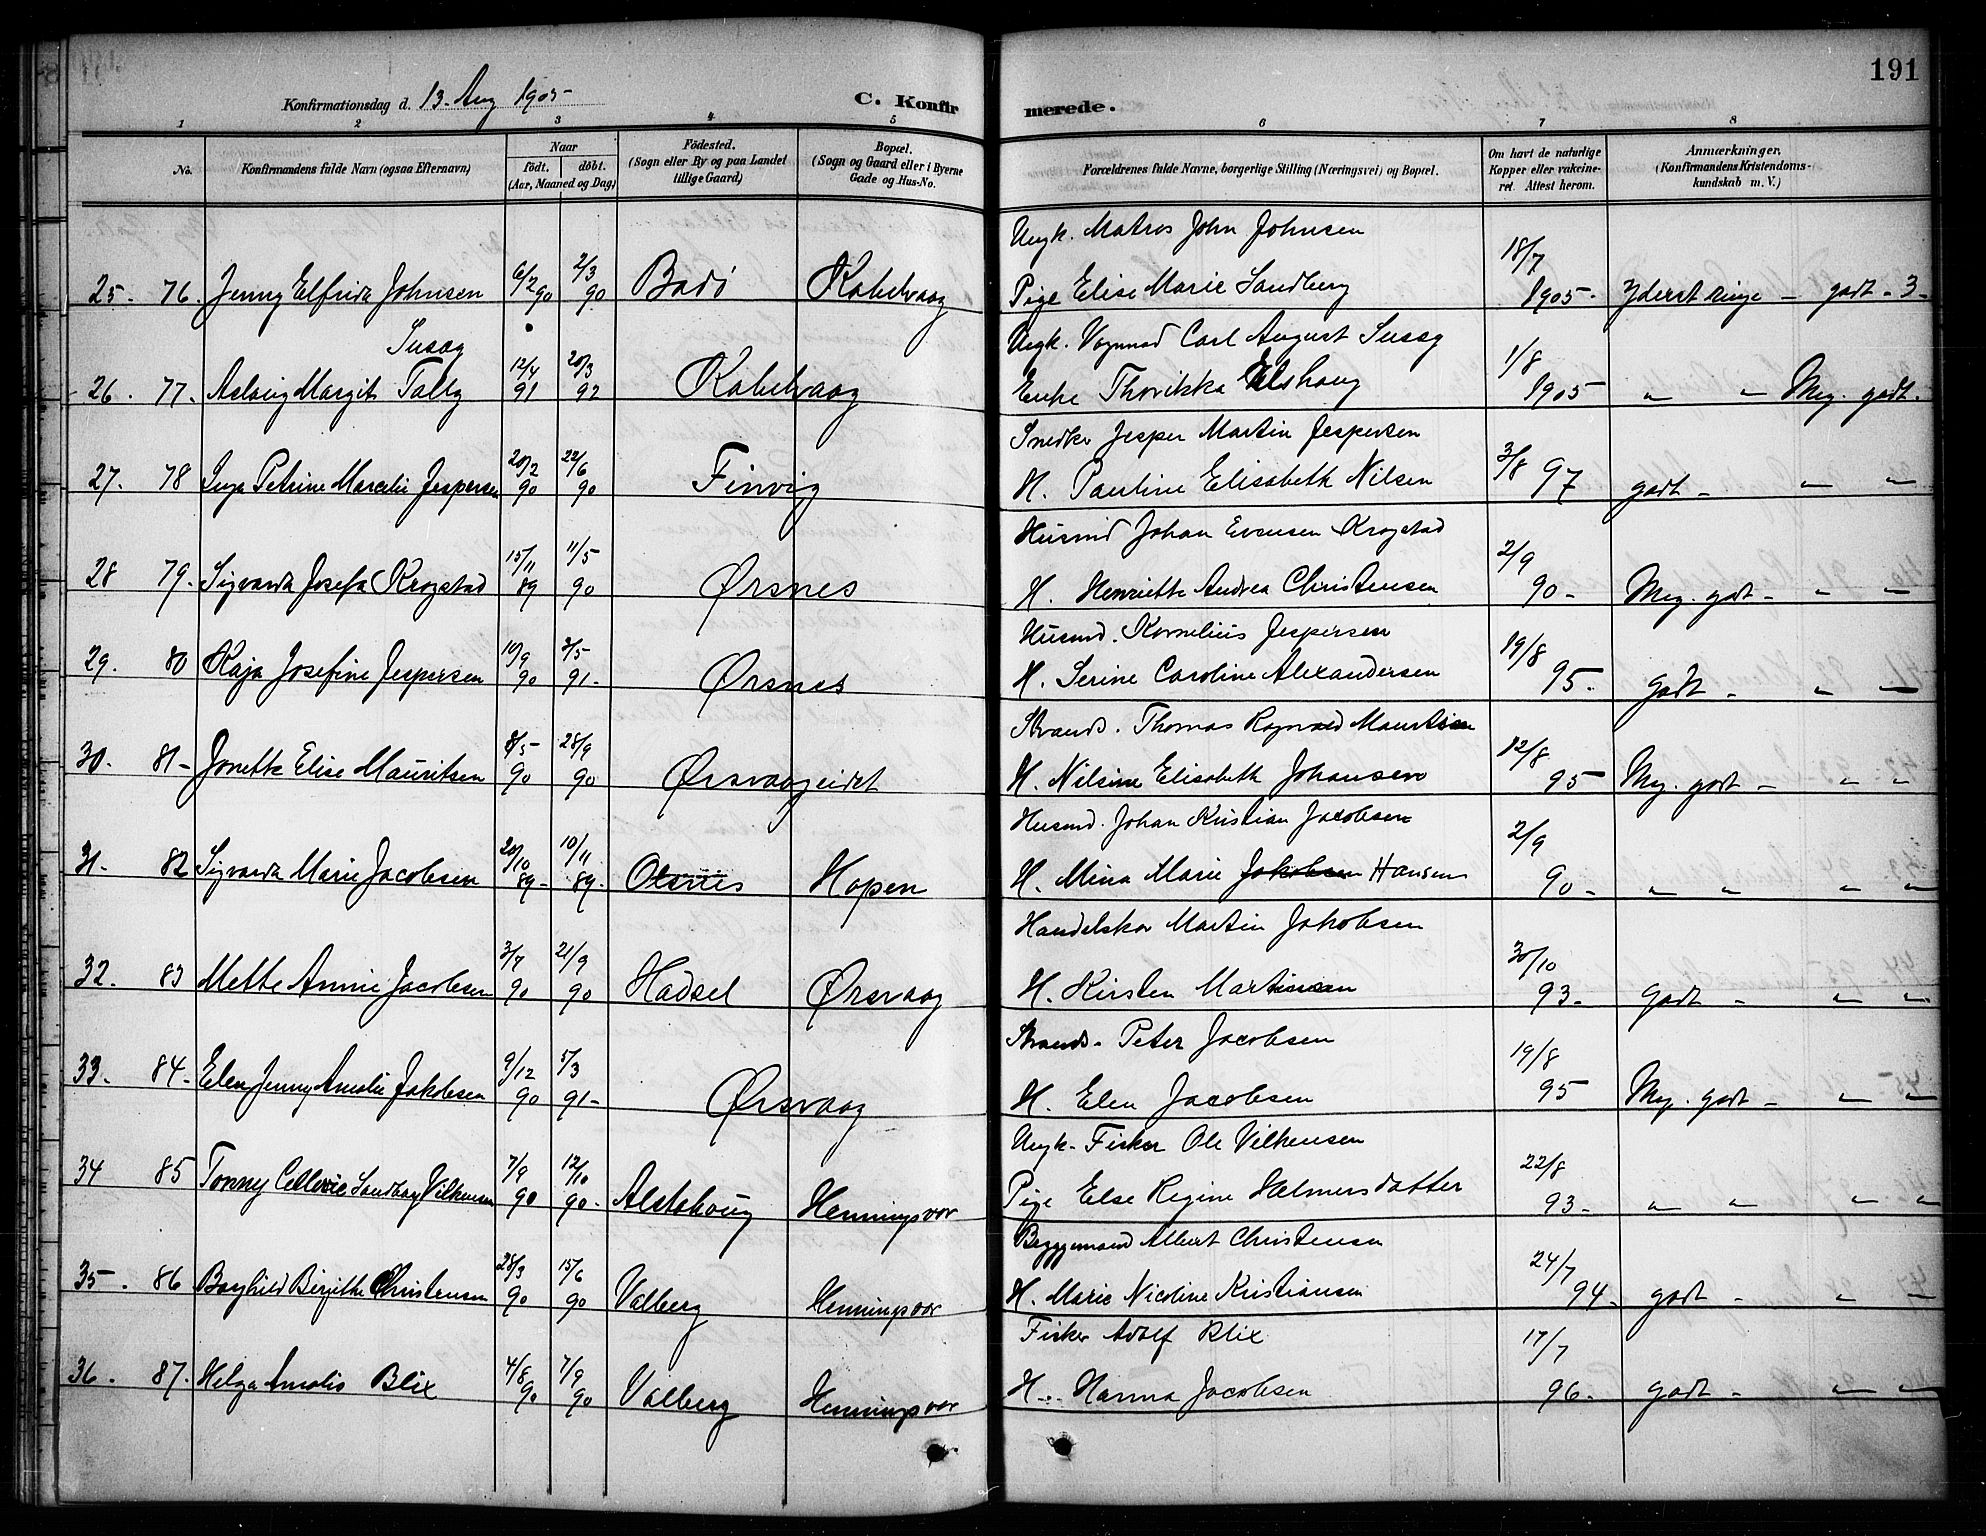 191
Konfirmationsdag d. 13. Aug 1905
C. Konfirmerede.
1 2 3 4 5 6 7 8
No.
Konfirmandens fulde Navn (ogsaa Efternavn)
Naar
født. døbt.
(Aar, Maaned og Dag)
Fødested.
(Sogn eller By og paa Landet
tillige Gaard)
Bopæl.
(Sogn og Gaard eller i Byerne
Gade og Hus-No.
Forældrenes fulde Navne, borgerlige Stilling (Næringsvei) og Bopæl.
Om havt de naturlige
Kopper eller vakcine-
ret. Attest herom.
Anmærkninger.
(Konfirmandens Kristendoms-
kundskab m. V.)
Ungk. Matros John Johnsen
25. 76. Jenny Elfrida Johnsen 6/2 90 2/3 90 Bodö Kabelvaag Pige Elise Marie Sandberg 18/7 1905. Yderst ringe - godt - 3-
Susag
Ungk. Vognmd Carl August Susag
26. 77. Aslaug Margit Talby 12/4 91 20/3 92 Kabelvaag Enke Thorikka Elshaug 1/8 1905 " " Meg. godt.
Snedker Jesper Martin Jespersen
27. 78 Inga Petrine Marcelie Jespersen 20/2 90 22/6 90 Finvig H. Pauline Elisabeth Nilsen 3/8 97 godt - " "
Husmd Johan Evensen Krogstad
28 79. Sigvarda Josefa Krogstad 15/11 89 11/5 90 Ørsnes H. Henriette Andrea Christensen 2/9 90- Meg. godt - " "
Husmd. Kornelius Jespersen
29. 80 Kaja Josefine Jespersen 10/9 90 3/5 91- Ørsnes H. Serine Caroline Alexandersen 19/8 95. godt - " "
Strands. Thomas Ragnvald Mauritsen
30. 81- Jonette Elise Mauritsen 8/5 90 28/9 90 Ørsvaageidet H. Nilsine Elisabeth Johansen 12/8 95 Meg. godt - " "
Husmd. Johan Kristian Jacobsen
31. 82 Sigvarda Marie Jacobsen 20/10 89- 10/11 89. Olsnes Hopen H. Mina Marie Jakobsen Hansen 2/9 90- " " " "
Handelskar Martin Jakobsen
32. 83 Mette Annie Jacobsen 3/7 90 21/9 90 Hadsel Ørsvaag H. Kirsten Martinsen 30/10 93- godt - " "
Strands. Peter Jacobsen
33. 84- Elen Jenny Amalie Jakobsen 9/12 90 5/3 91- Ørsvaag H. Elen Jacobsen 19/8 95 Meg. godt - " "
Ungk. Fisker Ole Vilhemsen
34 85 Tonny Cellerie Sandhaug Vilhemsen 7/9 90 12/10 90- Alstahoug Henningsvær Pige Else Regine Helmersdatter 22/8 93- " " " "
Byggemand Albert Christensen
35. 86 Borghild Birgithe Christensen 28/3 90 15/6 90 Valberg Henningsvær H. Marie Nicoline Kristiansen 24/7 94- godt - " "
Fisker Adolf Blix
36. 87. Helga Amalie Blix 4/8 90 7/9 90 Valberg Henningsvær H. Hanna Jacobsen 17/7 96- godt - " "